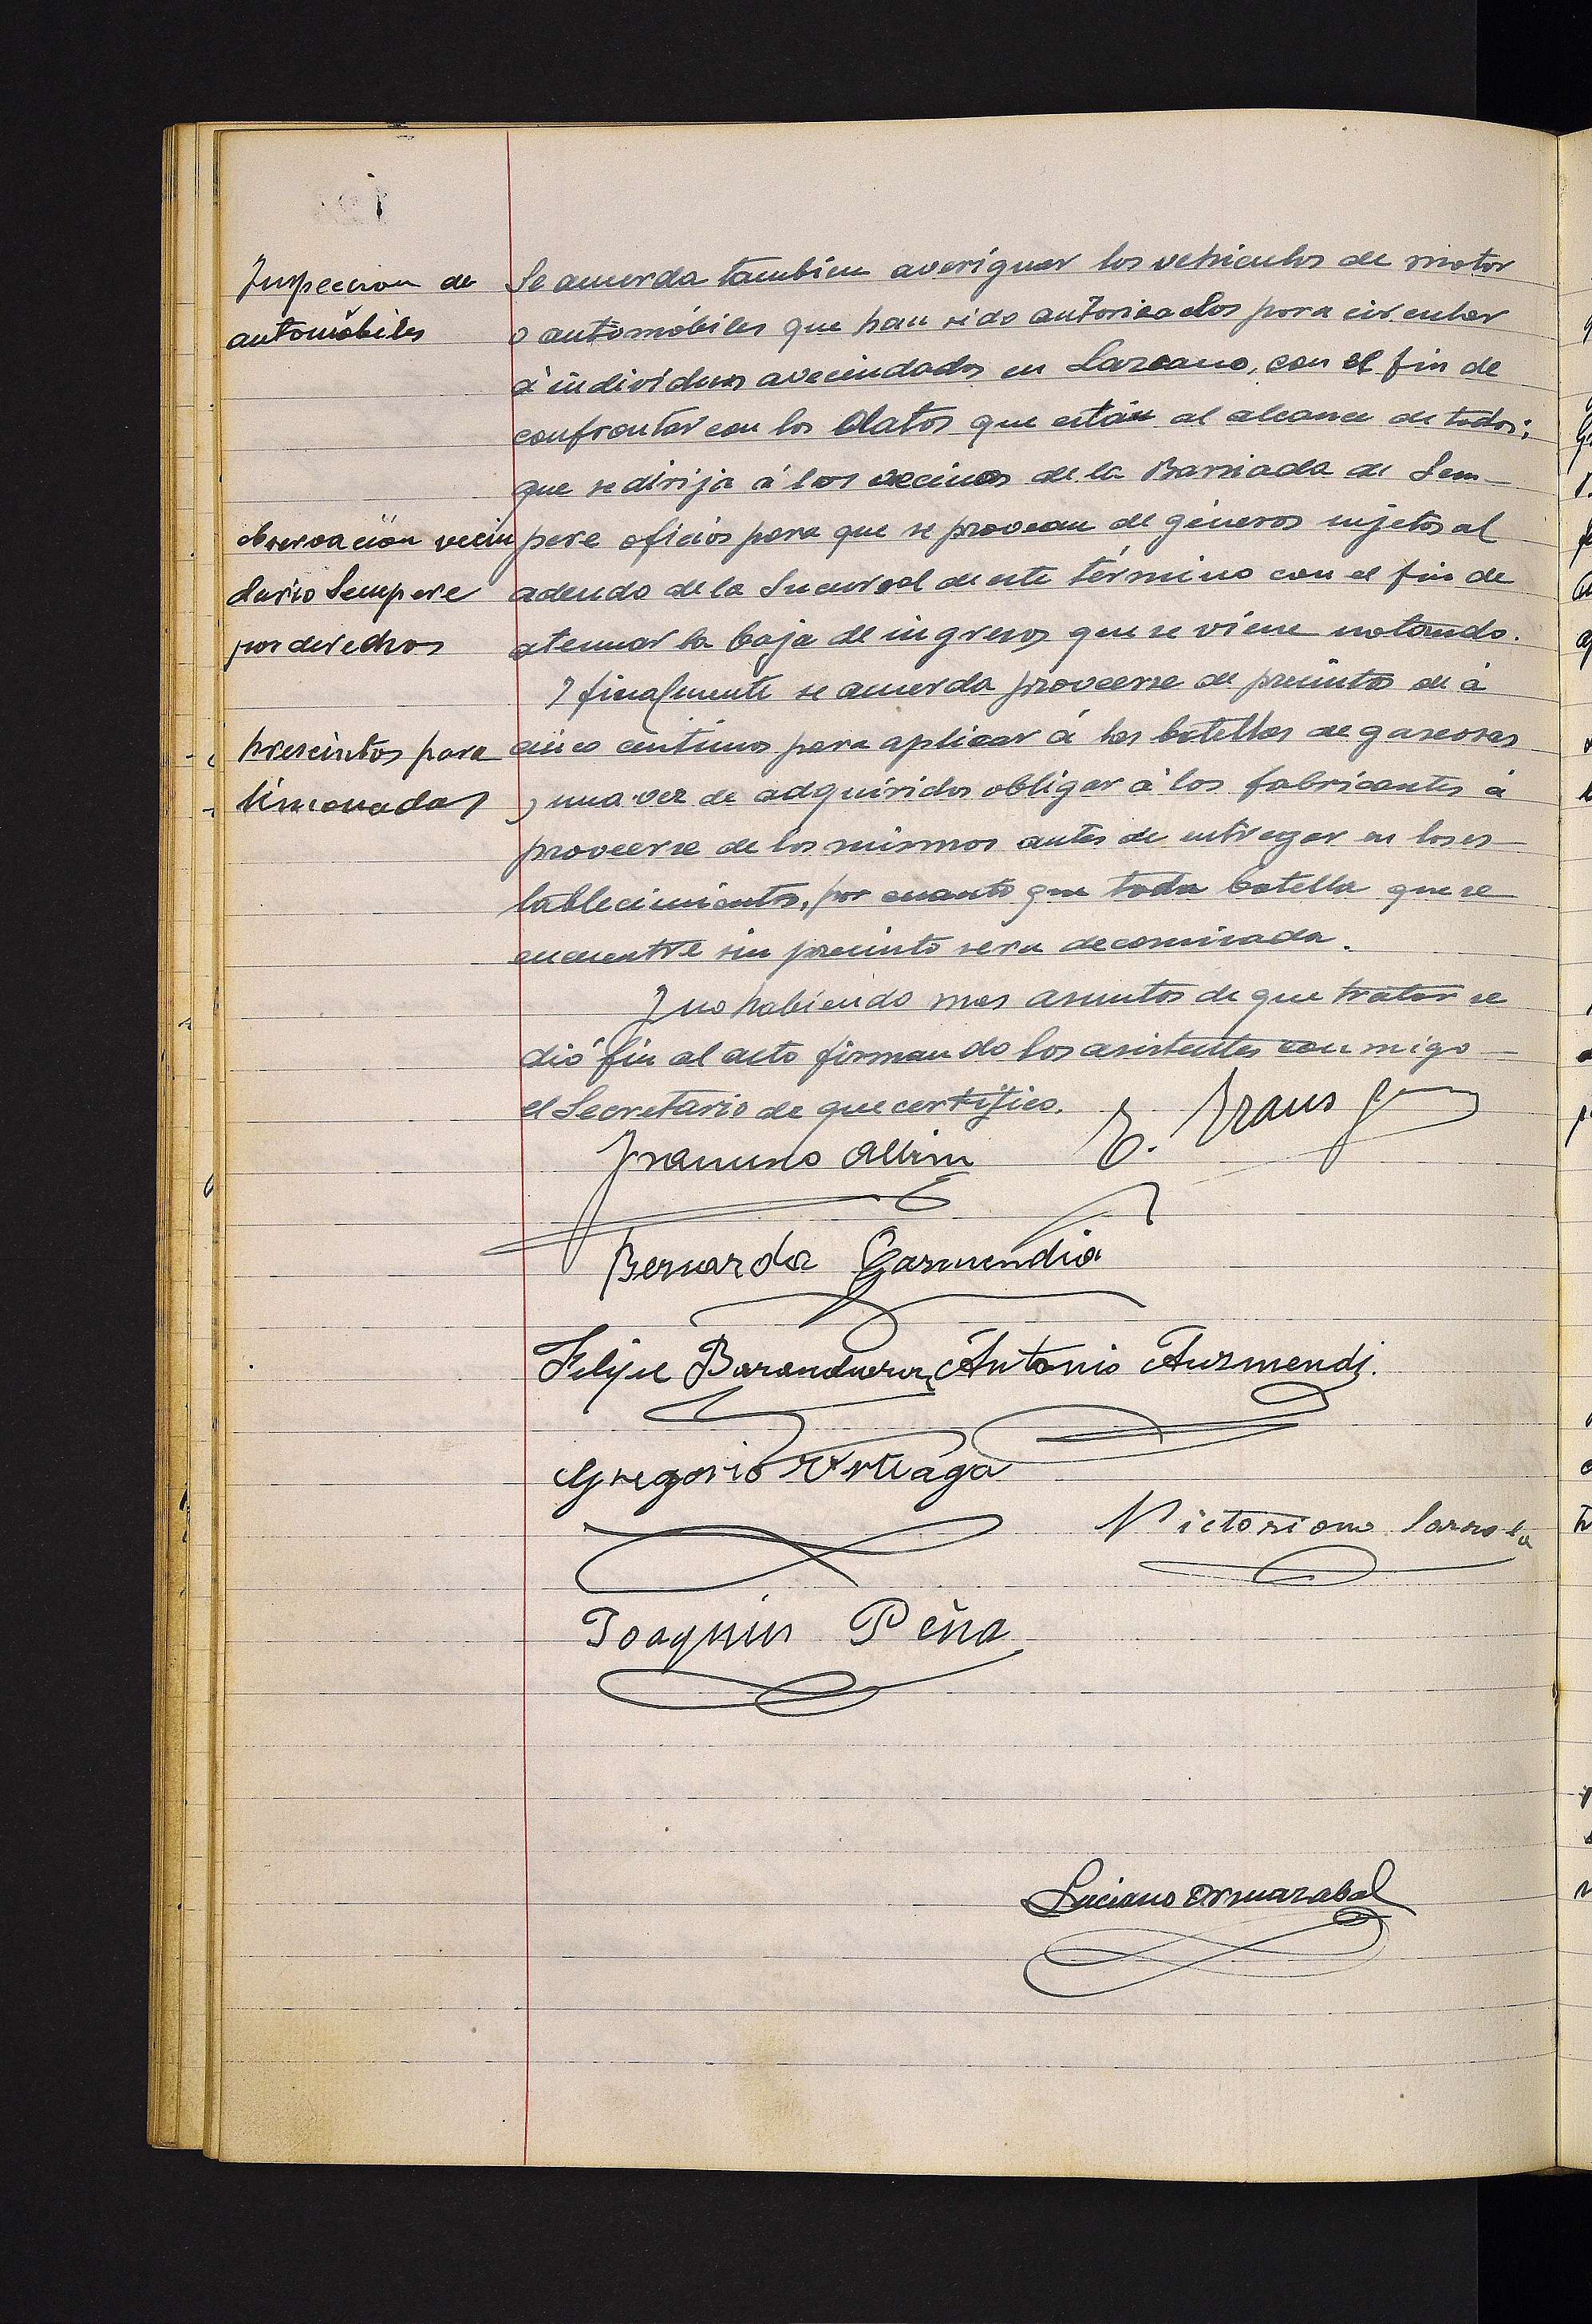 Inspeccion de
automóbiles
Se acuerda tambien averiguar los vehiculos de motor
o automóbiles que han sido autorizados para circular
á individuos avecindados en Lazcano, con el fin de
confrontar con los datos que están al alcance de todos;
que se dirija á los vecinos de la Barriada de Sem-
observación vecin
dario Sempere
por derechos
pere oficios para que se provean de géneros sujetos al
adeudo de la Sucursal de este término con el fin de
atenuar la baja de ingresos que se viene notando.
Y finalmente se acuerda proveerse de precintos de á
prescintos para
limonadas
cinco centimos para aplicar á las botellas de gaseosas
y una vez de adquiridos obligar á los fabricantes á
proveerse de los mismos antes de entregar en los es-
tablecimientos, por cuanto que toda botella que se
encuentre sin precinto sera decomisada.
Y no habiendo mas asuntos de que tratar se
dió fin al acto firmando los asistentes conmigo
el Secretario de que certifico.
Albisu
Bernardo Garmendia
Felipe Barandiaran Antonio Auzmendi.
Gregorio Urteaga
Victoriano
Joaquin Peña
Luciano Ormazabal